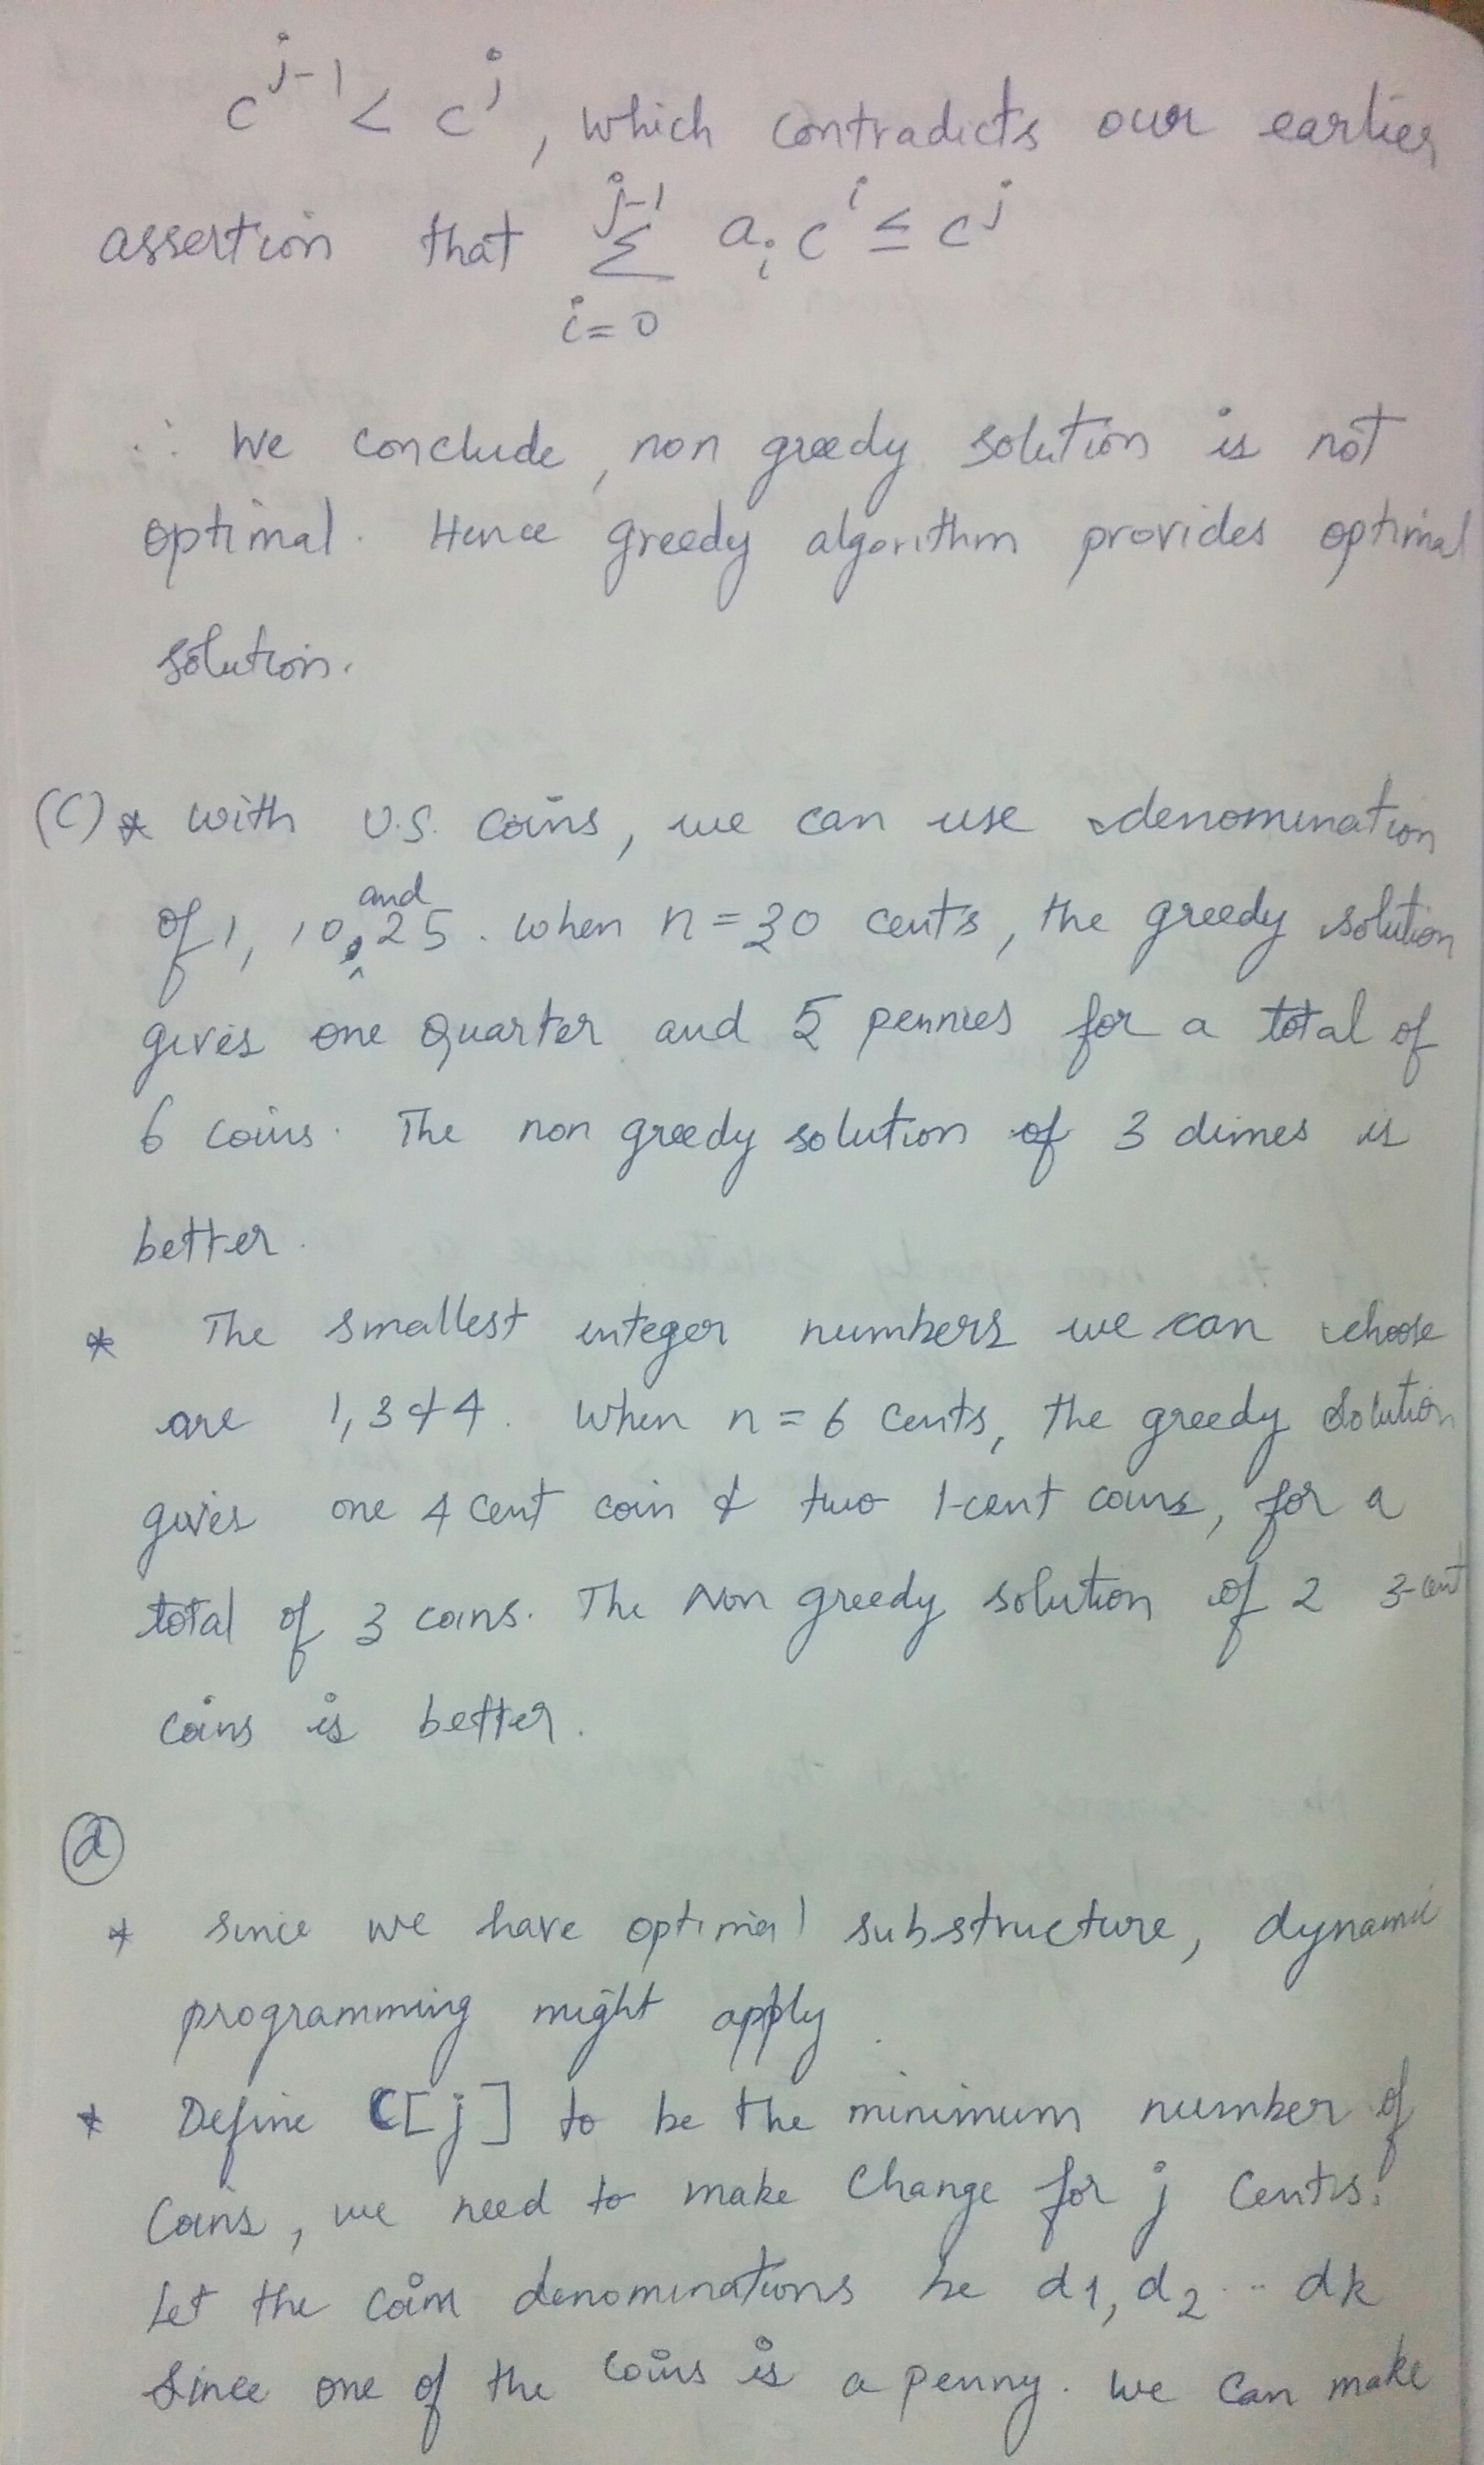 c^{j-1} < c^j, which contradicts our earlier
assertion that \sum_{i=0}^{j-1} a_i c^i ≤ c^j
∴ We conclude, non greedy solution is not
optimal. Hence greedy algorithm provides optimal
solution.
(C) * with U.S. coins, we can use denomination
of 1, 10, and 25. when n = 30 cents, the greedy solution
gives one quarter and 5 pennies for a total of
6 coins. The non greedy solution of 3 dimes is
better.
* The smallest integer numbers we can choose
are 1, 3 & 4. When n = 6 cents, the greedy solution
gives one 4 cent coin & two 1-cent coins, for a
total of 3 coins. The Non greedy solution of 2 3-cent
coins is better.
(d)
* since we have optimal substructure, dynamic
programming might apply.
* Define C[j] to be the minimum number of
Coins, we need to make Change for j Cents.
Let the coin denominations be d1, d2 .. dk
Since one of the coins is a penny. We can make